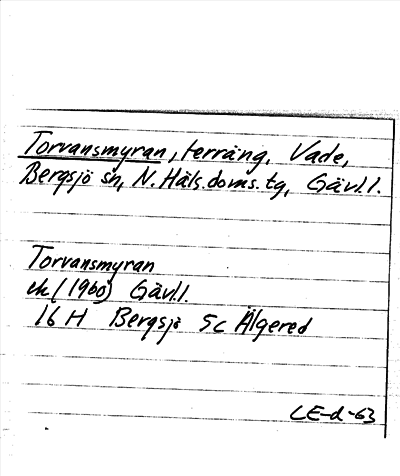 Torvansmyran, terräng, Vade,
Bergsjö sn, N. Häls. doms. tg, Gävl.l.
Torvansmyran
ek (1960) Gävl.l.
16 H Bergsjö 5c Älgered
LE-d-63